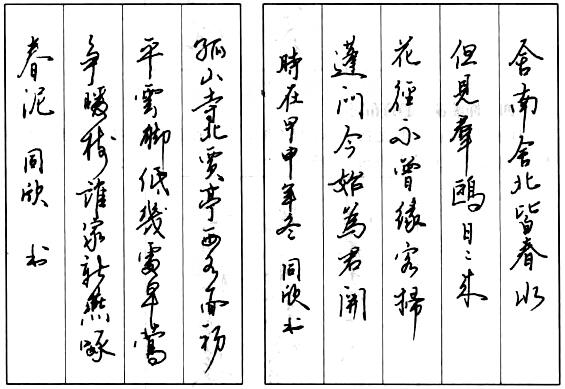 舍南舍北皆春水
但見羣鷗日〻來
花徑不曾緣客掃
蓬門今始為君開
時在甲申年冬 同欣书
孤山寺北賈亭西水面初
平雲脚低幾處早鶯
爭暖樹誰家新燕啄
春泥 同欣 书